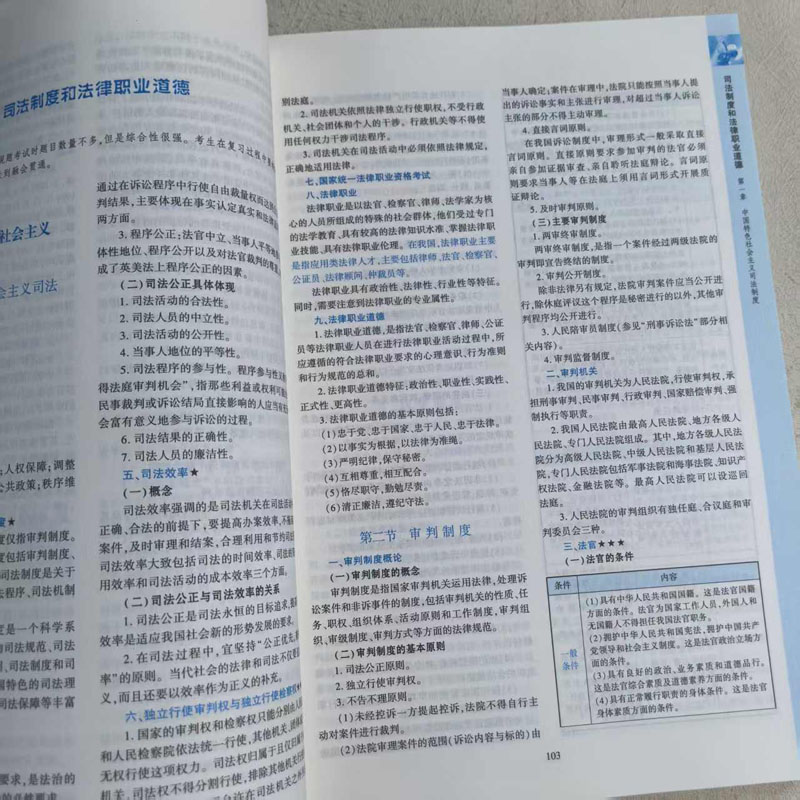 司法制度和法律职业道德
观题考试时题目数量不多，但是综合性很强。考生在复习过程中
到融会贯通。
社会主义
会主义司法
；人权保障；调整
公共政策；秩序维
度仅指审判制度。
度包括审判制度、
司法制度是关于
法程序、司法机制
度是一个科学系
司法规范、司法
司法制度和司
国特色的司法理
司法保障等丰富
要求，是法治的
通过在诉讼程序中行使自由裁量权而达
判结果，主要体现在事实认定真实和法律
两方面。
3. 程序公正：法官中立、当事人平等地
体性地位、程序公开以及对法官裁判的尊
成了英美法上程序公正的因素。
（二）司法公正具体体现
1. 司法活动的合法性。
2. 司法人员的中立性。
3. 司法活动的公开性。
4. 当事人地位的平等性。
5. 司法程序的参与性。程序参与性又
得法庭审判机会”，指那些利益或权利可能
民事裁判或诉讼结局直接影响的人应当有
会富有意义地参与诉讼的过程。
6. 司法结果的正确性。
7. 司法人员的廉洁性。
五、司法效率★
（一）概念
司法效率强调的是司法机关在司法活动
正确、合法的前提下，要提高办案效率，不
案件，及时审理和结案，合理利用和节约司
司法效率大致包括司法的时间效率、司法
用效率和司法活动的成本效率三个方面。
（二）司法公正与司法效率的关系
1. 司法公正是司法永恒的目标追求，
效率是适应我国社会新的形势发展的要求。
2. 在司法过程中，宜坚持“公正优先，
率”的原则。当代社会的法律和司法不仅
义，而且还要以效率作为正义的补充。
六、独立行使审判权与独立行使检察权★
1. 国家的审判权和检察权只能分别由人
和人民检察院依法统一行使，其他机关、
无权行使这项权力。司法权归属于且仅归属
司法权不得分割行使，排除其他机关行
别法庭。
2. 司法机关依照法律独立行使职权，不受行政
机关、社会团体和个人的干涉。行政机关等不得使
用任何权力干涉司法程序。
3. 司法机关在司法活动中必须依照法律规定，
正确地适用法律。
七、国家统一法律职业资格考试
八、法律职业
法律职业是以法官、检察官、律师、法学家为核
心的人员所组成的特殊的社会群体，他们受过专门
的法学教育、具有较高的法律知识水准、掌握法律职
业技能、具有法律职业伦理。在我国，法律职业主要
是指应用类法律人才，主要包括律师、法官、检察官、
公证员、法律顾问、仲裁员等。
法律职业具有政治性、法律性、行业性等特征。
同时，需要注意到法律职业的专业属性。
九、法律职业道德
1. 法律职业道德，是指法官、检察官、律师、公证
员等法律职业人员在进行法律职业活动过程中，所
应遵循的符合法律职业要求的心理意识、行为准则
和行为规范的总和。
2. 法律职业道德特征：政治性、职业性、实践性、
正式性、更高性。
3. 法律职业道德的基本原则包括：
（1）忠于党、忠于国家、忠于人民、忠于法律。
（2）以事实为根据，以法律为准绳。
（3）严明纪律，保守秘密。
（4）互相尊重，相互配合。
（5）恪尽职守，勤勉尽责。
（6）清正廉洁，遵纪守法。
第二节 审判制度
一、审判制度概论
（一）审判制度的概念
审判制度是指国家审判机关运用法律，处理诉
讼案件和非诉事件的制度，包括审判机关的性质、任
务、职权、组织体系、活动原则和工作制度，审判组
织、审级制度、审判方式等方面的法律规范。
（二）审判制度的基本原则
1. 司法公正原则。
2. 独立行使审判权。
3. 不告不理原则。
（1）未经控诉一方提起控诉，法院不得自行主
动对案件进行裁判。
（2）法院审理案件的范围（诉讼内容与标的）由
当事人确定；案件在审理中，法院只能按照当事人提
出的诉讼事实和主张进行审理，对超过当事人诉讼
主张的部分不得主动审理。
4. 直接言词原则。
在我国诉讼制度中，审理形式一般采取直接
言词原则。直接原则要求参加审判的法官必须
亲自参加证据审查、亲自聆听法庭辩论。言词原
则要求当事人等在法庭上须用言词形式开展质
证辩论。
5. 及时审判原则。
（三）主要审判制度
1. 两审终审制度。
两审终审制度，是指一个案件经过两级法院的
审判即宣告终结的制度。
2. 审判公开制度。
除非法律另有规定，法院审判案件应当公开进
行，除休庭评议这个程序是秘密进行的以外，其他审
判程序均公开进行。
3. 人民陪审员制度（参见“刑事诉讼法”部分相
关内容）。
4. 审判监督制度。
二、审判机关
1. 我国的审判机关为人民法院，行使审判权，承
担刑事审判、民事审判、行政审判、国家赔偿审判、强
制执行等职责。
2. 我国人民法院由最高人民法院、地方各级人
民法院、专门人民法院组成。其中，地方各级人民法
院分为高级人民法院、中级人民法院和基层人民法
院，专门人民法院包括军事法院和海事法院、知识产
权法院、金融法院等。最高人民法院可以设巡回
法庭。
3. 人民法院的审判组织有独任庭、合议庭和审
判委员会三种。
三、法官★★★
（一）法官的条件
条件
内容
一般
条件
（1）具有中华人民共和国国籍。这是法官国籍
方面的条件。法官为国家工作人员，外国人和
无国籍人不得担任我国法官职务。
（2）拥护中华人民共和国宪法，拥护中国共产
党领导和社会主义制度。这是法官政治立场方
面的条件。
（3）具有良好的政治、业务素质和道德品行。
这是法官综合素质及道德素养方面的条件。
（4）具有正常履行职责的身体条件。这是法官
身体素质方面的条件。
103
司法制度和法律职业道德
第一章 中国特色社会主义司法制度